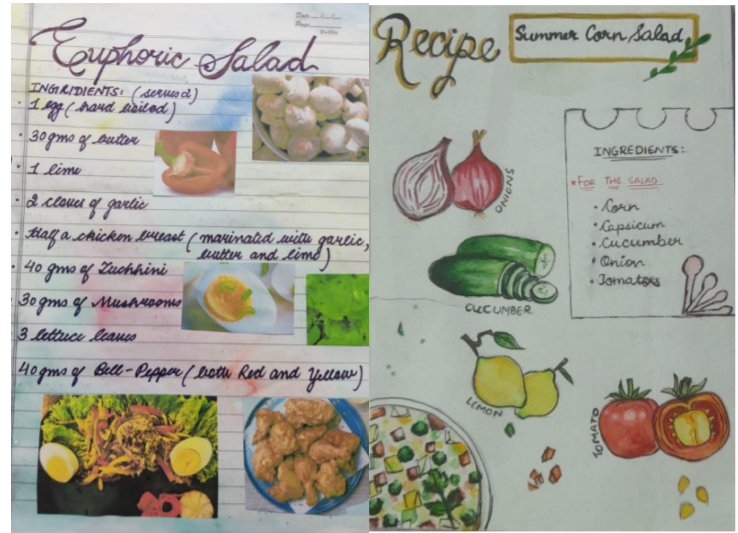 Date
Page
Euphoric Salad
INGIRIDIENTS: (serves 2)
• 1 egg (hard boiled)
• 30gms of butter
• 1 lime
• 2 cloves of garlic
• Half a chicken breast (marinated with garlic,
butter and lime)
• 40 gms of Zuchhini
• 30gms of Mushrooms
3 lettuce leaves
40gms of Bell-Pepper (both Red and Yellow)
Recipe
Summer Corn Salad
ONIONS
INGREDIENTS:
* FOR THE SALAD
• Corn
• Capsicum
• Cucumber
• Onion
• Tomatoes
CUCUMBER
LEMON
TOMATO